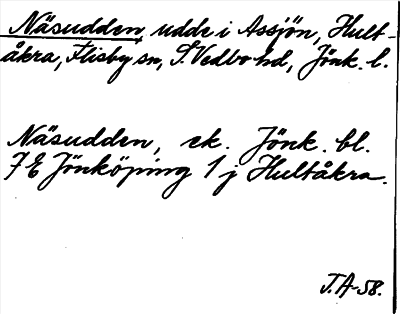 Näsudden, udde i Assjön, Hult-
åkra, Flisby sn, S. Vedbo hd, Jönk. l.
Näsudden, ek. Jönk. bl.
7E Jönköping 1 j Hultåkra.
T.A-58.